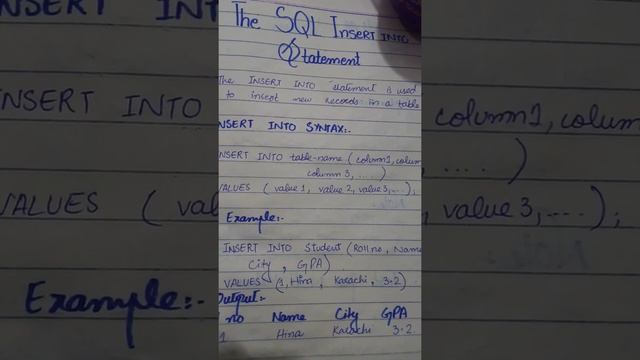 The SQL INSERT INTO
Statement
The INSERT INTO statement is used
to insert new records in a table
INSERT INTO SYNTAX:-
INSERT INTO table-name (column1, colum
column 3, ....)
VALUES (value 1, value 2, value 3, ....);
Example:-
INSERT INTO Student (Roll no, Name
City, GPA)
VALUES (1, Hina, Karachi, 3.2)
Output:-
no Name City GPA
1 Hina Karachi 3.2